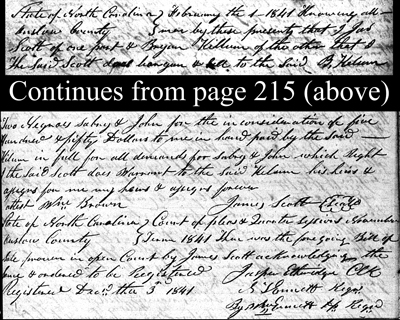 State of North Carolina } February the 1 1841 Knowing all
Onslow County } men by these presents that I Jas
Scott of one part & Bryan Kellum of the other that I
The Said Scott does bargain & sell to the Said B, Kellum
Continues from page 215 (above)
Two Negroes Sabry & John for the in consideration of five
hundred & fifty Dollars to me in hand paid by the said
Kellum in full for all demands for Sabry & John which Right
I the Said Scott does Warrant to the Said Kellum his heirs &
assigns for me my heirs & assigns forever
attest Wm Brown James Scott
State of North Carolina } Court of pleas & Quarter Sessions November
Onslow County } Term 1841 Then was the foregoing Bill of
Sale proven in open Court by James Scott acknowledging the
same & ordered to be Registered Jasper Etheridge Clk
Registered Decr. the 3rd 1841 Ennett Regr.
By Ennett Regr